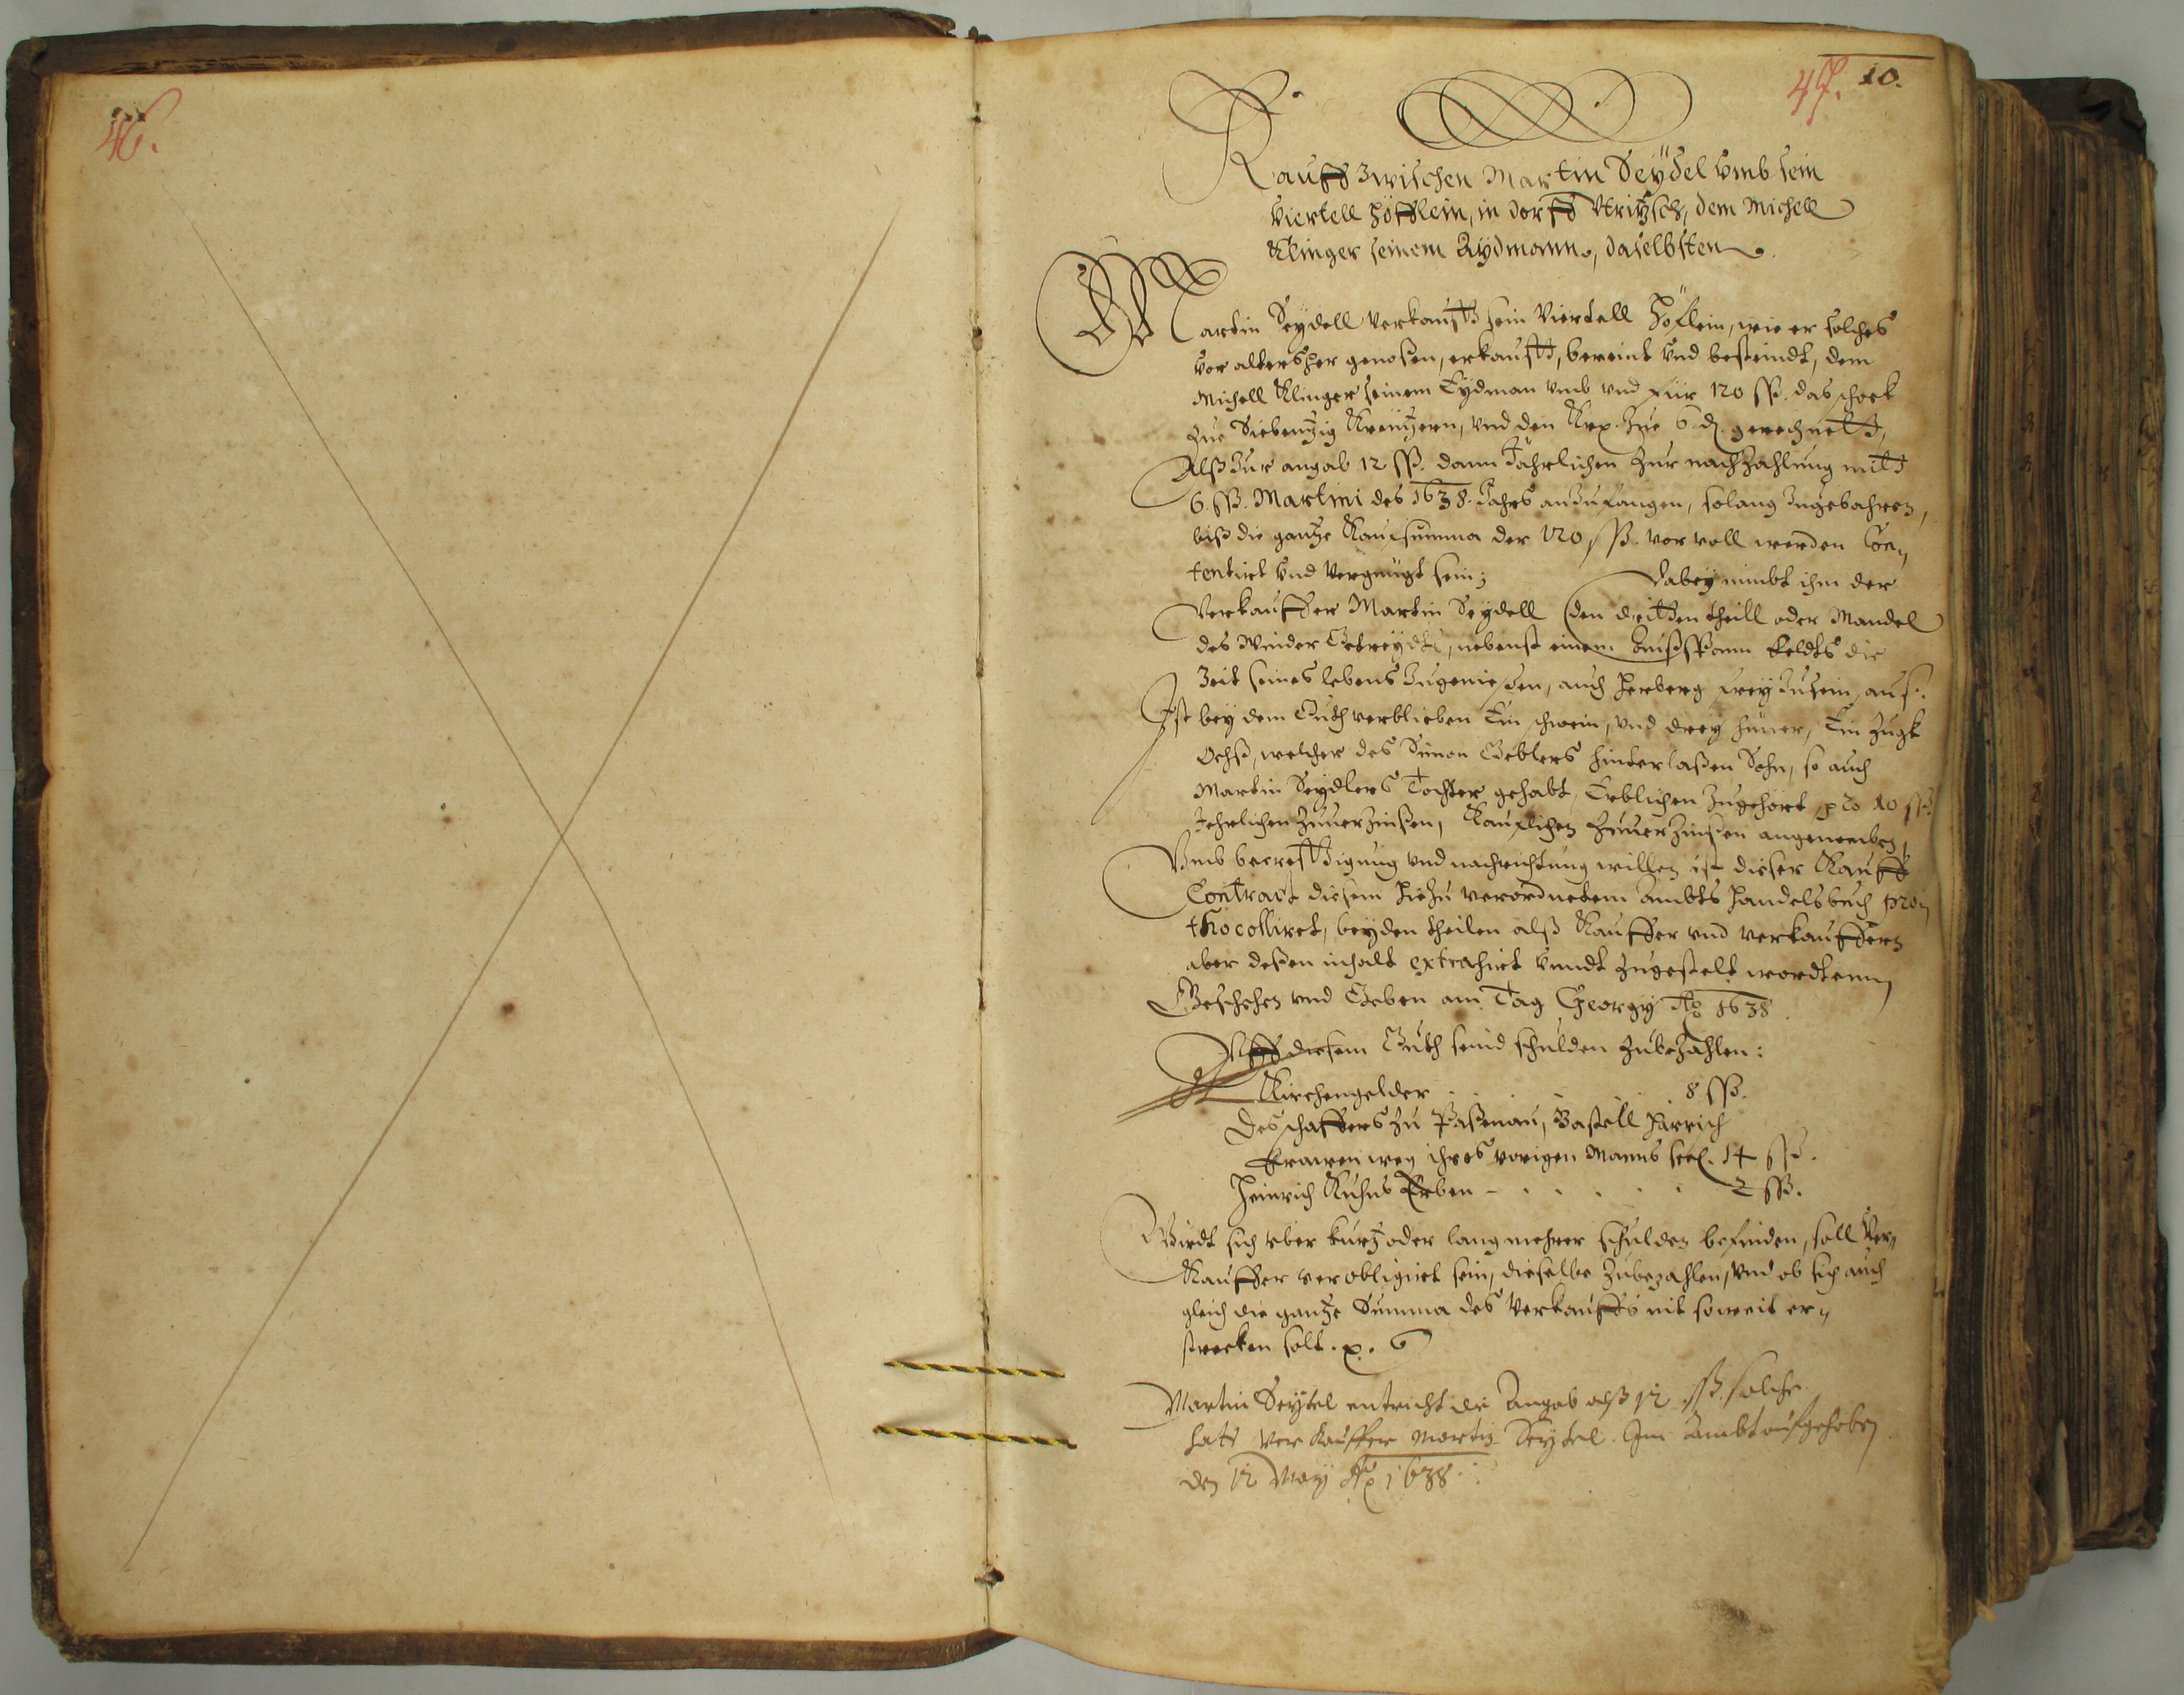 46.
47. 10.
Kauff zwischen Martin Seÿdel umb sein
Viertell Höfflein, in dorff Utritzsch, dem Michell
Klinger seinem Aÿdmann, daselbsten.
Martin Seydell verkaufft sein Viertell Höflein, wie er solches
vor altersher genoßen, erkaufft, bereint und besteindt, dem
Michell Klinger seinem Eydman umb und für 120 ßß. das schock
zue Siebentzig Kreutzern, und den Krx. zue 6 d. gerechnett,
Alß zur angab 12 ßß. dann Jährlichen zur nachzahlung mitt
6. ßß. Martini des 1638. Jahrs anzufangen, solang zugebahren,
biß die gantze Kaufsumma der 120 ßß. vor voll werden Con„
tentirt und vergnügt sein; dabey nimbt ihm der
Verkauffer Martin Seydell den dritten theill oder Mandel
des Winder Getreydts, nebenst einem Außspann Feldts die
Zeit seines lebens zugenießen, auch herberg frey zusein, auß.
Ist bey dem Guth verblieben Ein schwein, und drey hüner, Ein Zugk
Ochß, welcher des Simon Geblers hinterlaßen Sohn, so auch
Martin Seydlers Tochter gehabt, Erblichen zugehört, pro 10 ßß
Jehrlichen zuuerzinßen, Kauflichen zuuerzinßen angenomben,
Umb becrefftigung und nachrichtung willen ist dieser Kauff
Contract diesem hiezu verordnetem ambts handelsbuch pro„
thocolliret, beyden theilen alß Kauffer und verkauffern
aber deßen inhalt extrahirt unndt zugestelt wordtenn,
Geschehen und Geben am Tag Georgy Ao 1638.
Uff diesem Guth seind schulden zubezahlen:
Kirchengelder . . . . 8 ßß.
Des schaffers zu Paßenau, Bastell Harrich
Frawen weg ihres vorigen Manns seel. 14 ßß.
Heinrich Kuhns Erben - . . . . . 2 ßß.
Wirdt sich uber kurtz oder lang mehrer schulden befinden, soll Ver„
Kauffer verobligirt sein, dieselbe zubezahlen, und ob sich auch
gleich die gantze Summa des Verkauffs nit soweit er„
strecken solt. x.
Martin Seytel entricht die Angab alß 12 ßß. solche
hatt Verkauffer Martin Seytel Im Ambt aufgehoben
den 12 May Ao 1638.